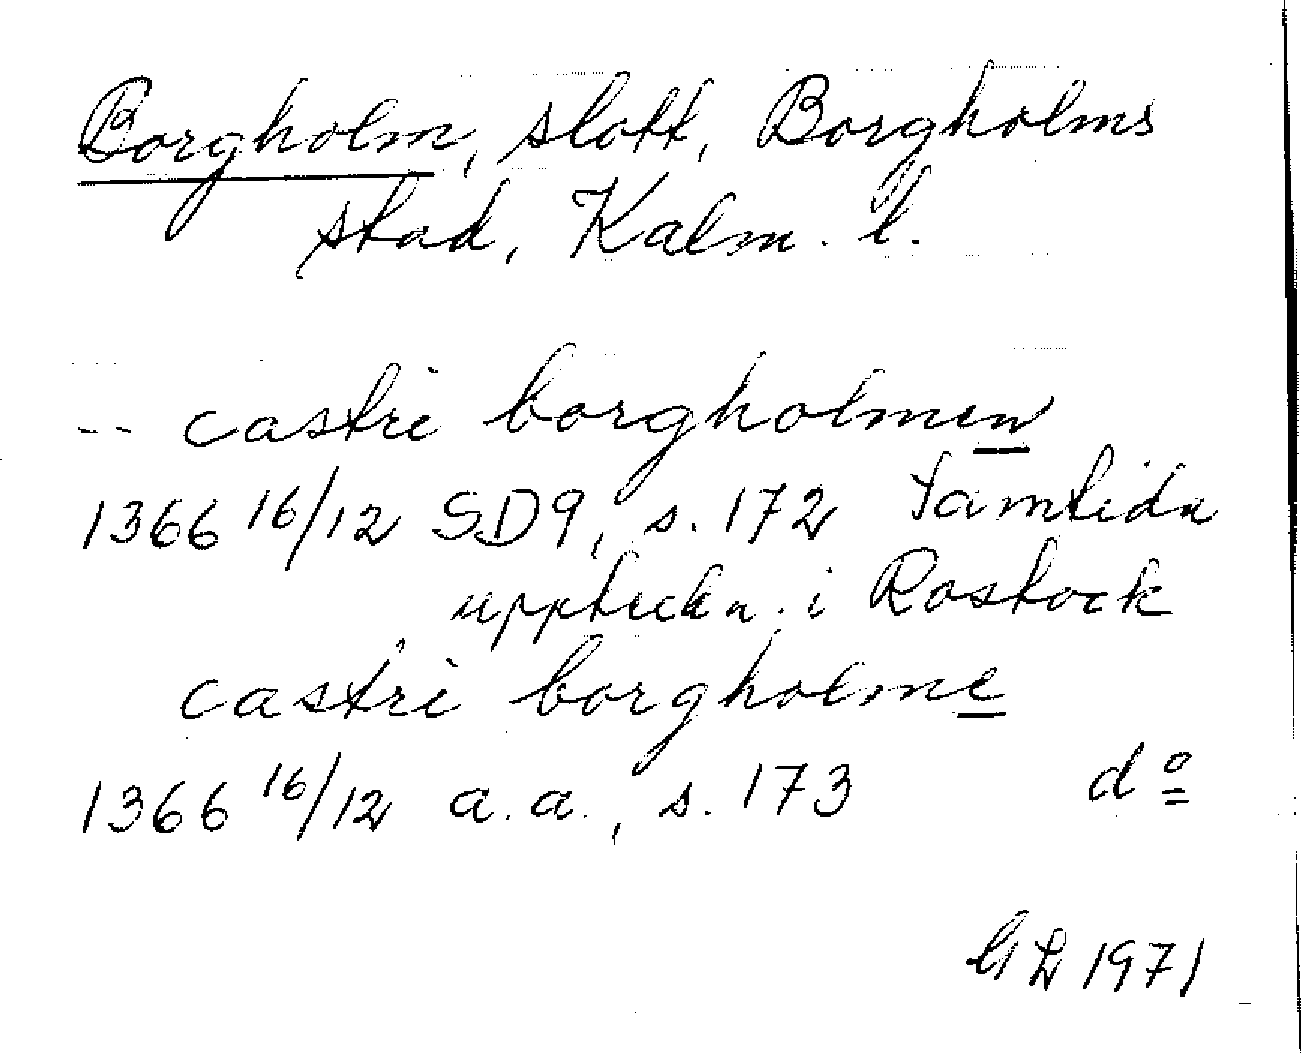 Borgholm, slott, Borgholms
stad, Kalm. l.
-- castri borgholmen
1366 16/12 SD9, s. 172 Samtida
uppteckn. i Rostock
castri borgholme
1366 16/12 a.a., s. 173 do
1971